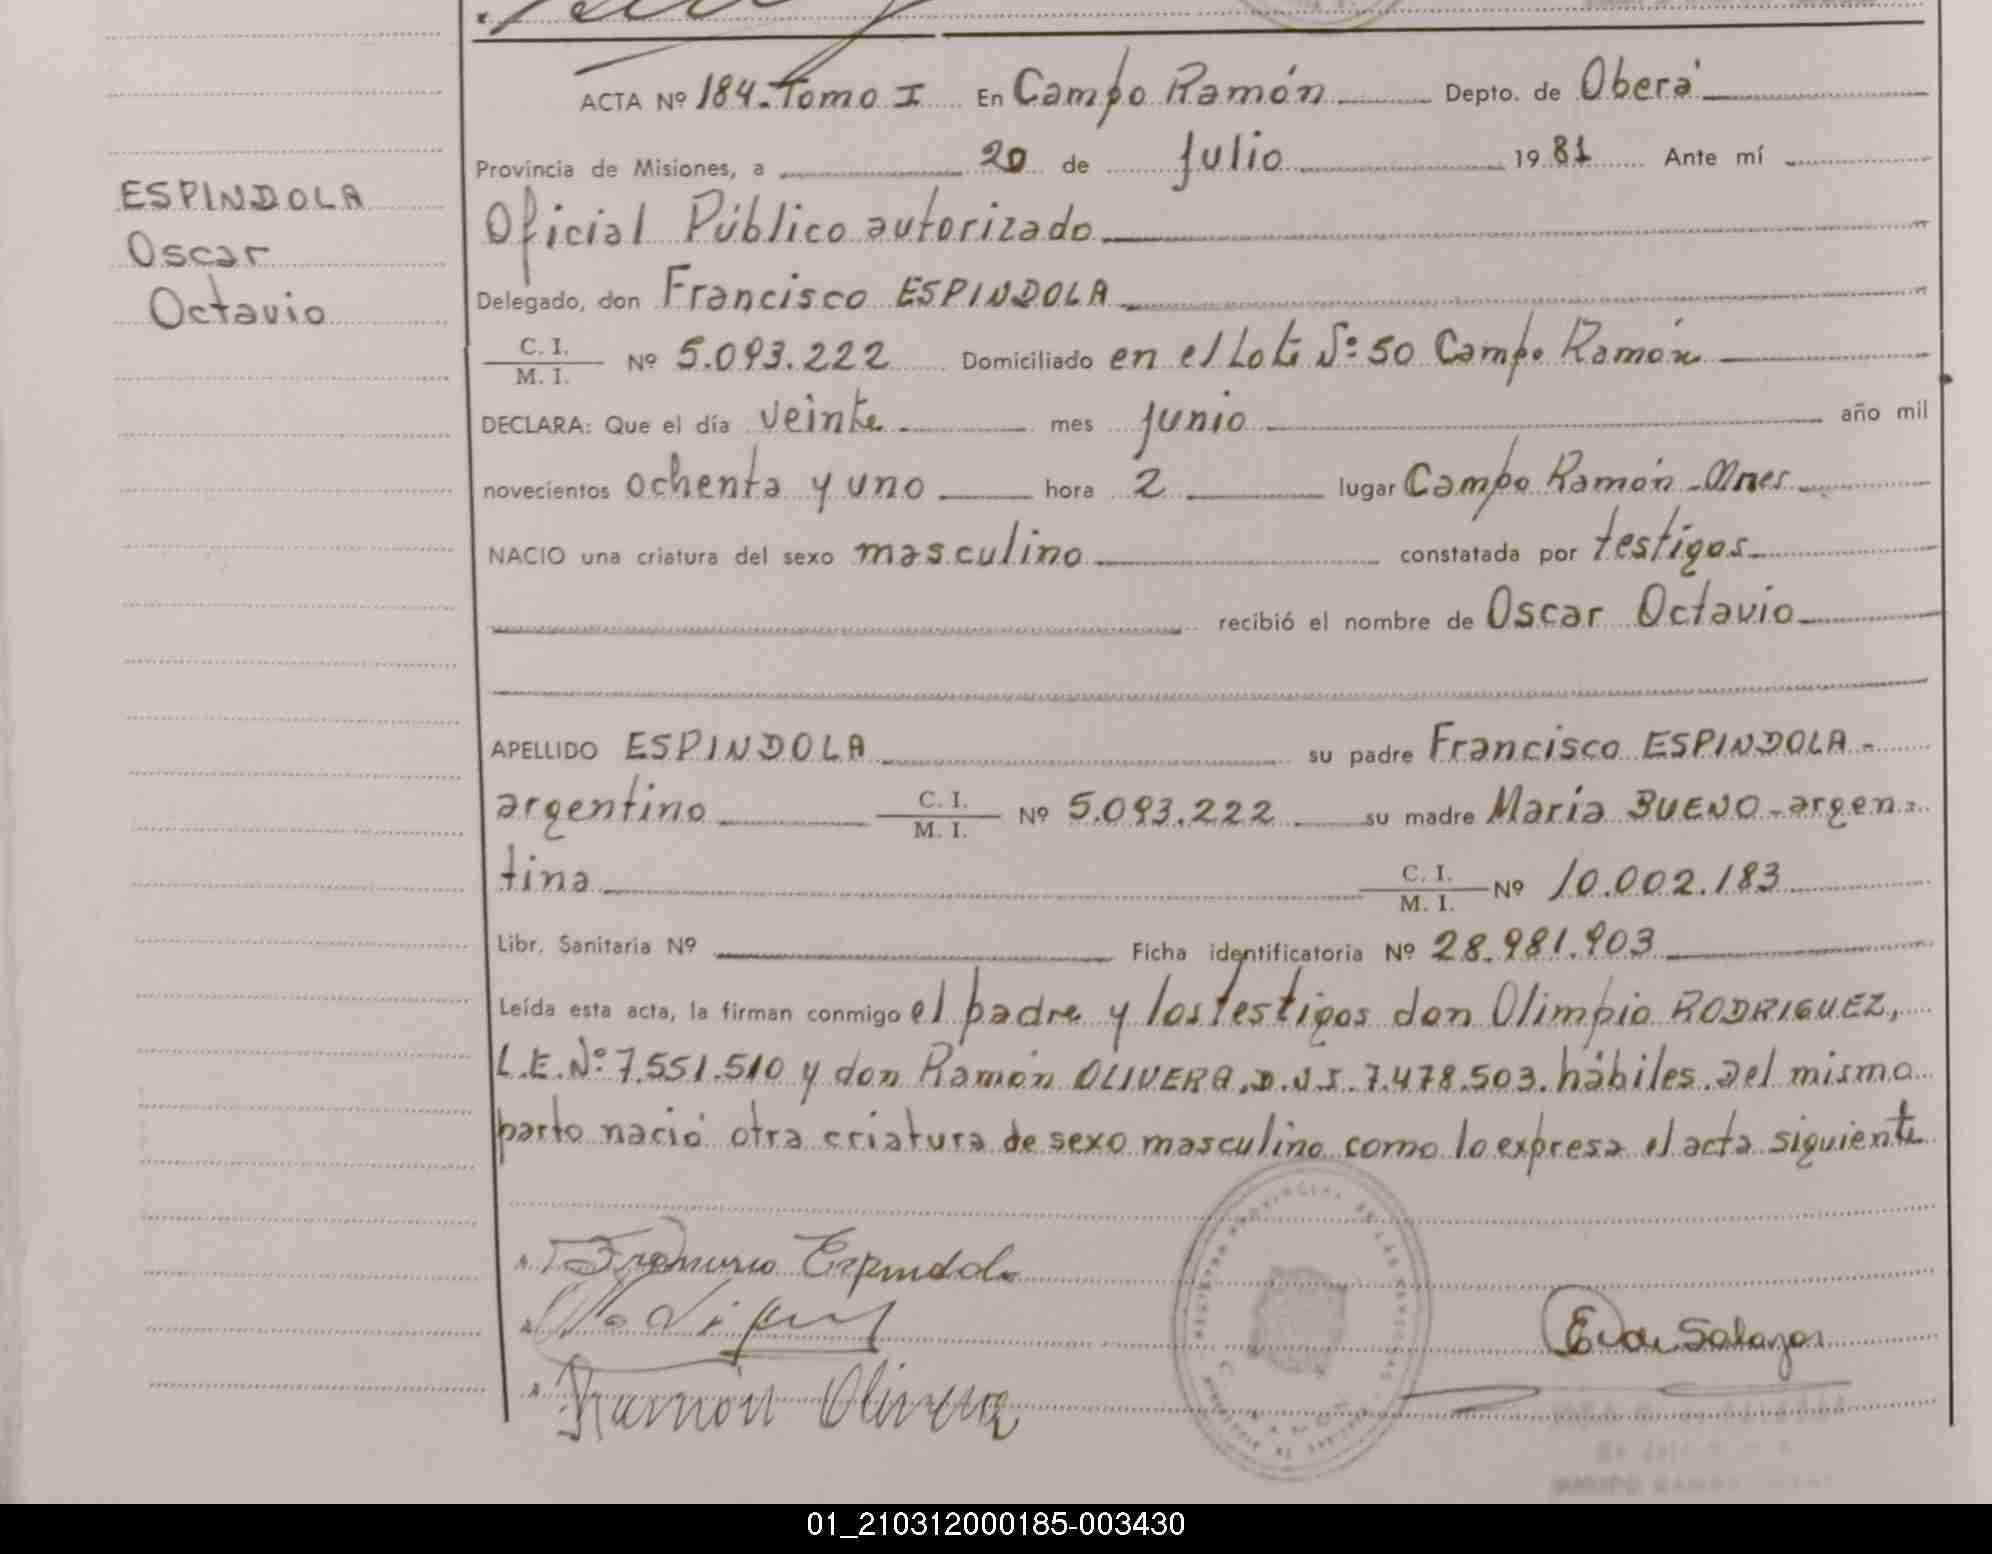 ACTA Nº 184-Tomo I En Campo Ramón Depto. de Oberá
Provincia de Misiones, a 20 de julio 1981 Ante mí
Oficial Público autorizado
Delegado, don Francisco ESPINDOLA
C. I.
M. I. Nº 5.093.222 Domiciliado en el Lote Nº 50 Campo Ramón
DECLARA: Que el día veinte mes junio año mil
novecientos ochenta y uno hora 2 lugar Campo Ramón - Mnes
NACIO una criatura del sexo masculino constatada por testigos
recibió el nombre de Oscar Octavio
APELLIDO ESPINDOLA su padre Francisco ESPINDOLA -
argentino C. I.
M. I. Nº 5.093.222 su madre Maria BUENO - argen=
tina C. I.
M. I. Nº 10.002.183
Libr. Sanitaria Nº Ficha identificatoria Nº 28.981.903
Leída esta acta, la firman conmigo el padre y los testigos don Olimpio RODRIGUEZ,
L.E.Nº 7.551.510 y don Ramón OLIVERA. D.N.I. 7.478.503. hábiles. Del mismo
parto nació otra criatura de sexo masculino como lo expresa el acta siguiente
Francisco Espindola
Ramon Olivera
E. de Salazar
ESPINDOLA
Oscar
Octavio
01_210312000185-003430